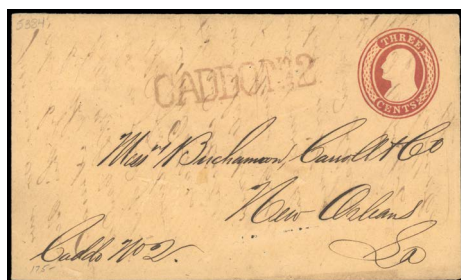 5384
THREE
CENTS
CADDO Nº2
Messrs Buchanan, Carroll & Co
New Orleans
La
Caddo No 2.
175-